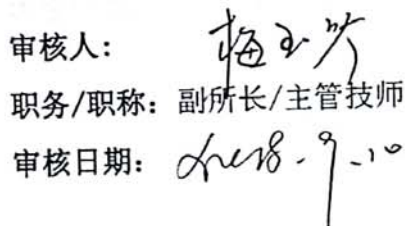 审核人：梅玉芬
职务/职称：副所长/主管技师
审核日期：2018.9.10